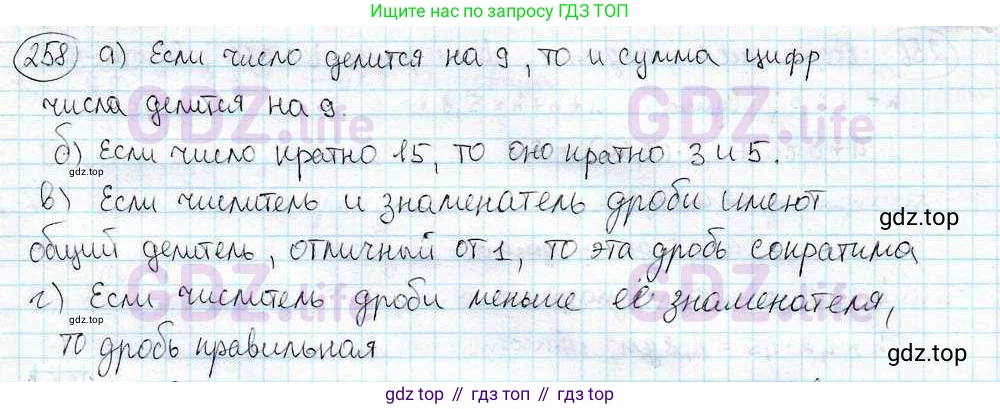 Ищите нас по запросу ГДЗ ТОП
258 а) Если число делится на 9, то и сумма цифр
числа делится на 9.
GDZ.life GDZ.life
б) Если число кратно 15, то оно кратно 3 и 5.
gdz.top
в) Если числитель и знаменатель дроби имеют
gdz.top
общий делитель, отличный от 1, то эта дробь сократима
GDZ.life GDZ.life
г) Если числитель дроби меньше её знаменателя,
gdz.top
то дробь правильная
gdz.top
gdz top // гдз топ // gdz.top